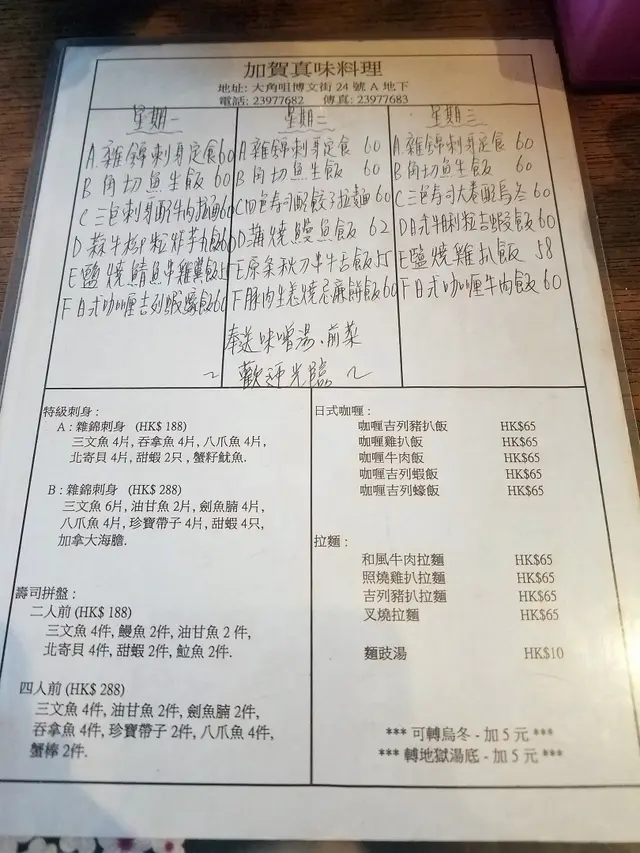 加賀真味料理
地址: 大角咀博文街 24 號 A 地下
電話: 23977682 傳真: 23977683
星期一
A. 雜錦刺身定食 60
B 角切魚生飯 60
C 三色刺身配牛肉拉麵 60
D 蒜牛柳粒炸芋丸飯 60
E 鹽燒鯖魚牛雞翼飯 55
F 日式咖喱吉列蝦蠔飯 60
星期二
A. 雜錦刺身定食 60
B 角切魚生飯 60
C 四色壽司配餃子拉麵 60
D 蒲燒鰻魚飯 62
E 原条秋刀牛舌飯 55
F 豚肉生羌燒尼庶餅飯 60
星期三
A. 雜錦刺身定食 60
B 角切魚生飯 60
C 三色壽司大卷配烏冬 60
D 日式牛脷粒吉蝦飯 60
E 鹽燒雞扒飯 58
F 日式咖喱牛肉飯 60
奉送味噌湯、前菜
~ 歡迎光臨 ~
特級刺身 :
A : 雜錦刺身 (HK$ 188)
三文魚 4片, 吞拿魚 4片, 八爪魚 4片,
北寄貝 4片, 甜蝦 2只 , 蟹籽魷魚.
B : 雜錦刺身 (HK$ 288)
三文魚 6片, 油甘魚 2片, 劍魚腩 4片,
八爪魚 4片, 珍寶帶子 4片, 甜蝦 4只,
加拿大海膽.
壽司拼盤 :
二人前 (HK$ 188)
三文魚 4件, 鰻魚 2件, 油甘魚 2 件,
北寄貝 4件, 甜蝦 2件, 鯍魚 2件.
四人前 (HK$ 288)
三文魚 4件, 油甘魚 2件, 劍魚腩 2件,
吞拿魚 4件, 珍寶帶子 2件, 八爪魚 4件,
蟹棒 2件.
日式咖喱 :
咖喱吉列豬扒飯 HK$65
咖喱雞扒飯 HK$65
咖喱牛肉飯 HK$65
咖喱吉列蝦飯 HK$65
咖喱吉列蠔飯 HK$65
拉麵 :
和風牛肉拉麵 HK$65
照燒雞扒拉麵 HK$65
吉列豬扒拉麵 HK$65
叉燒拉麵 HK$65
麵豉湯 HK$10
*** 可轉烏冬 - 加 5 元 ***
*** 轉地獄湯底 - 加 5 元 ***